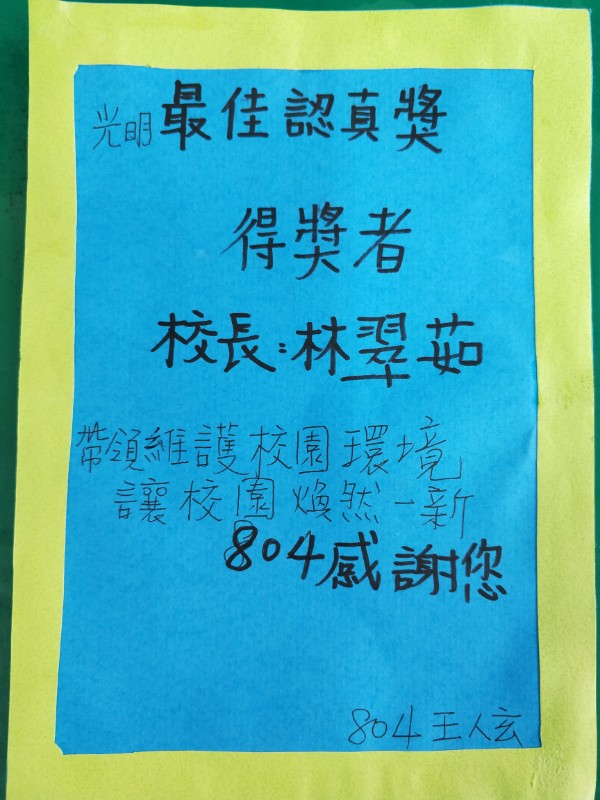 光明最佳認真獎
得獎者
校長：林翠茹
帶領維護校園環境
讓校園煥然一新
804感謝您
804王人玄